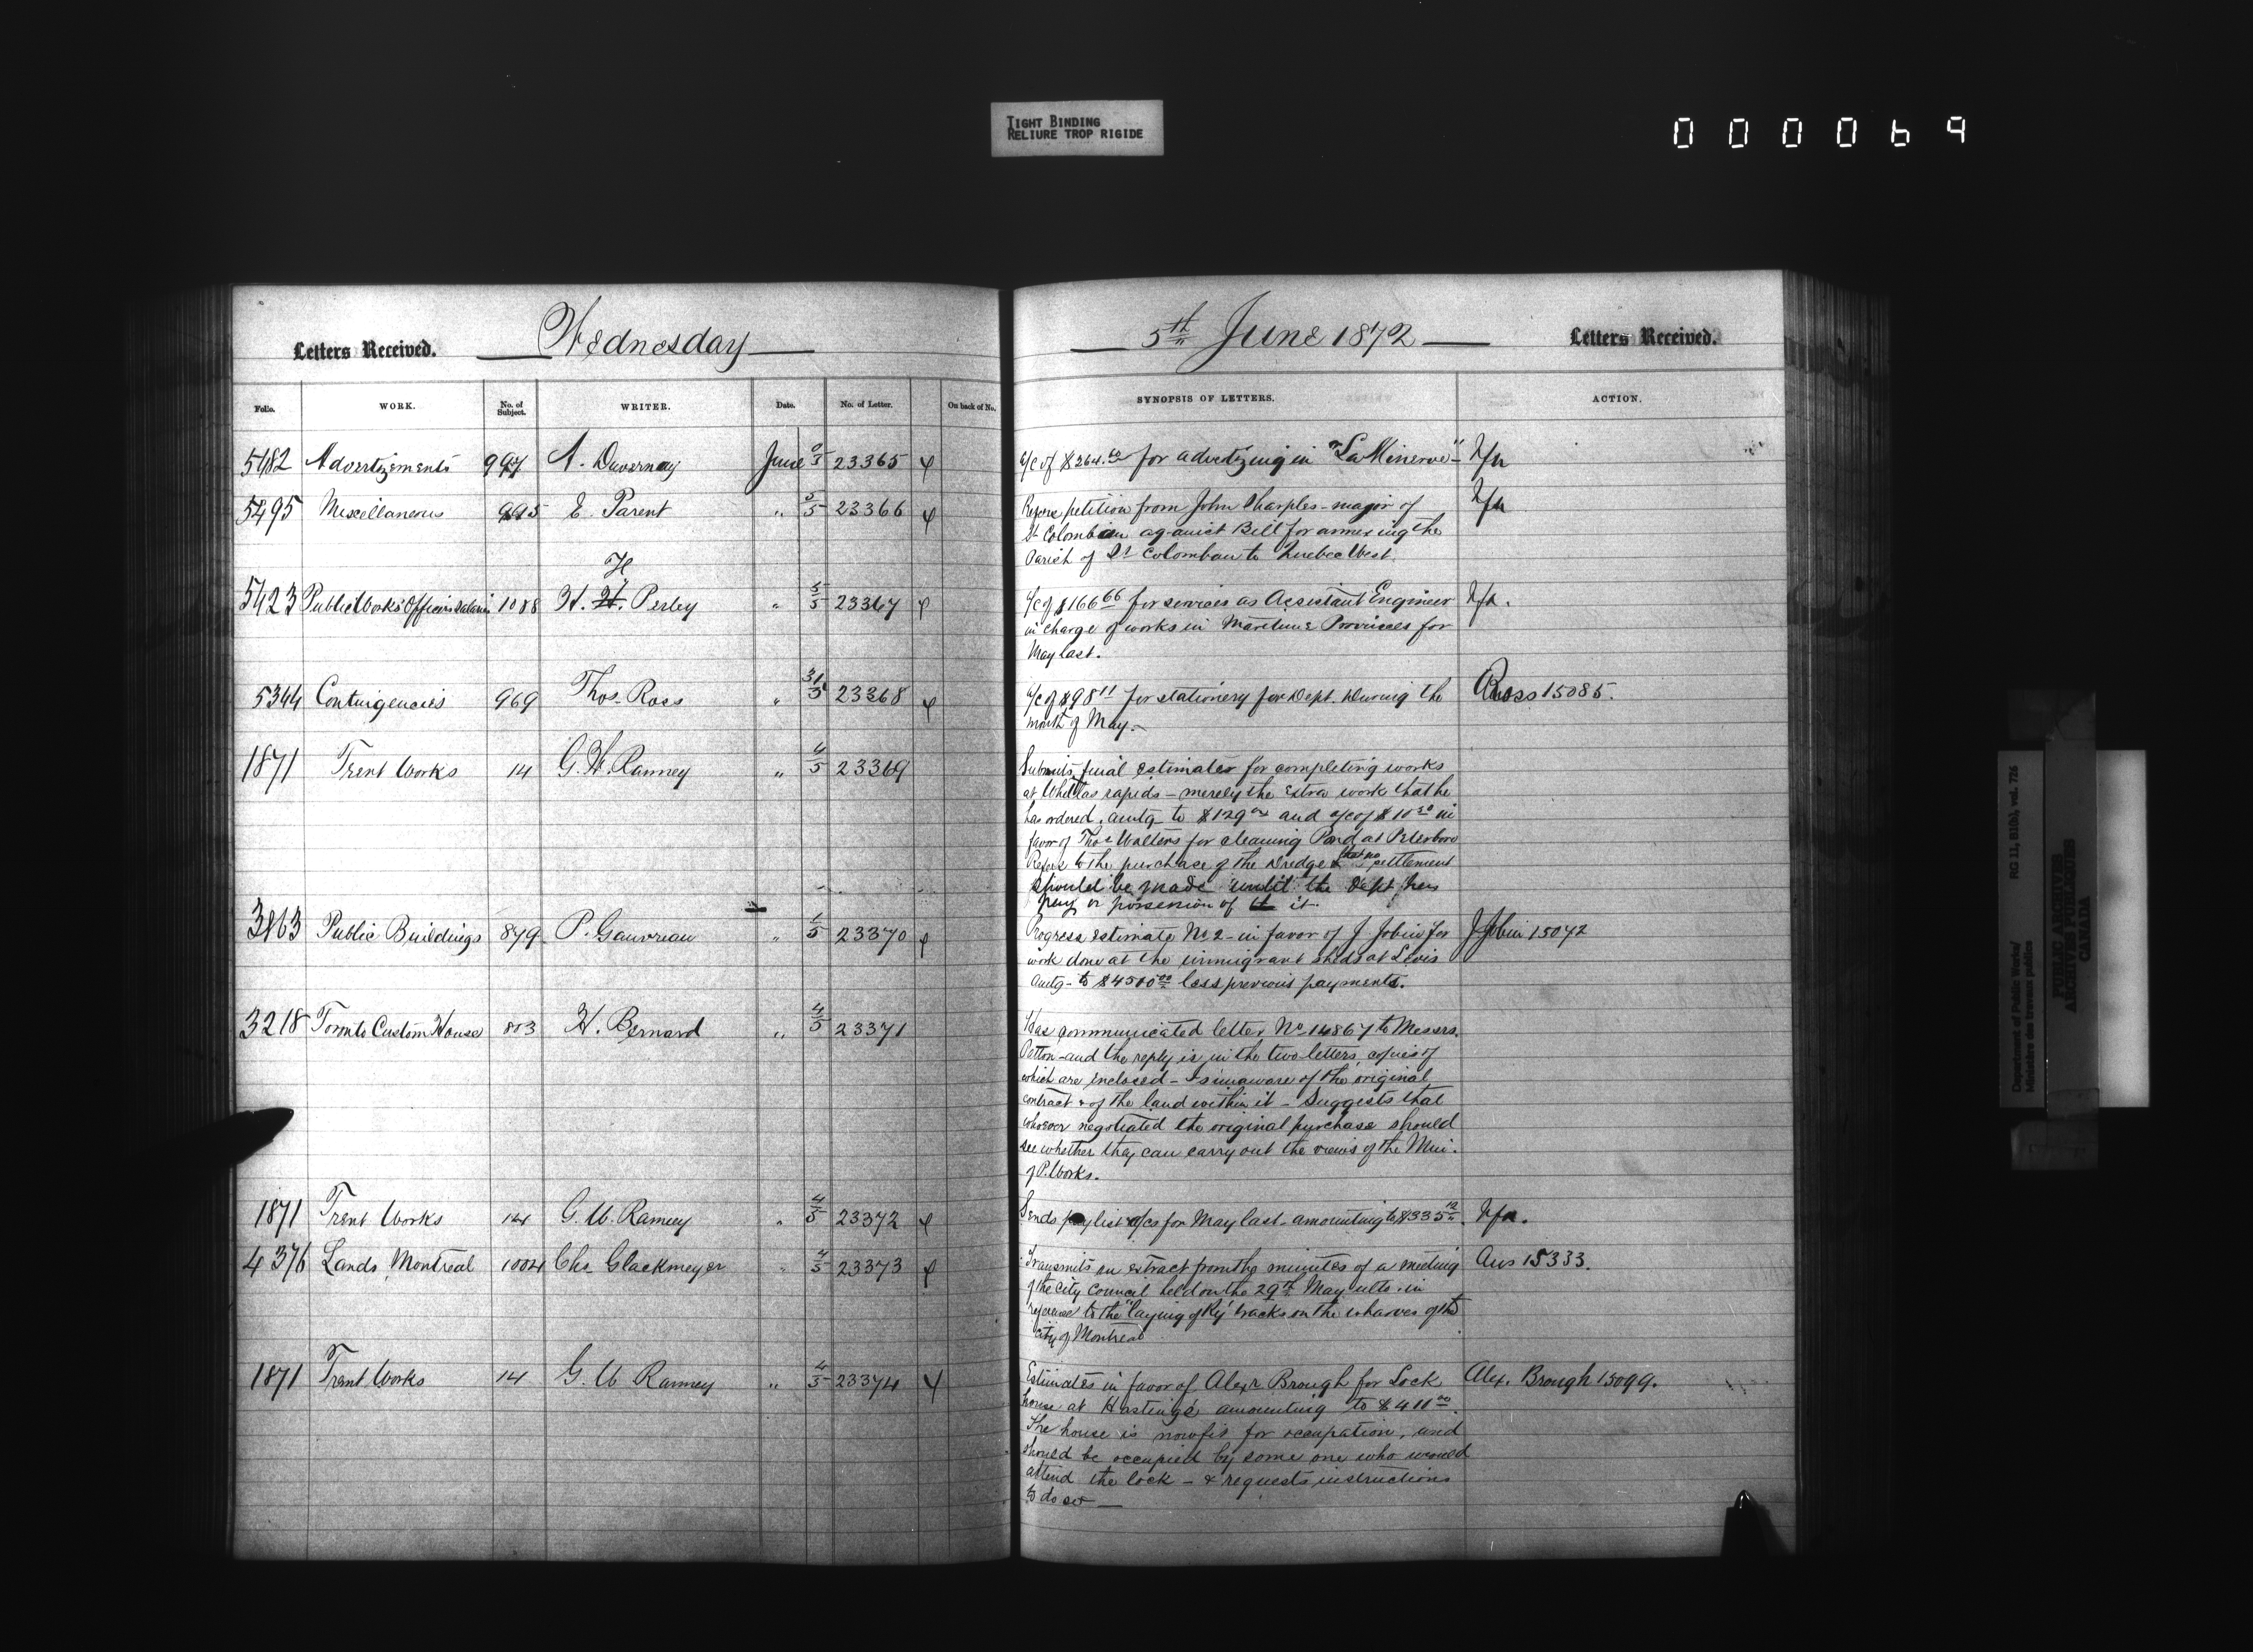 TIGHT BINDING
RELIURE TROP RIGIDE
000069
Letters Received. Wednesday
5th June 1872 Letters Received.
Folio. WORK. No. of Subject. WRITER. Date. No. of Letter. On back of No.
SYNOPSIS OF LETTERS. ACTION.
5482 Advertizements 997 A. Duvernay June 23365
a/c of $264. for advertizing in "La Minerve"
5495 Miscellaneous 995 E. Parent " 5/5 23366
petition from John Sharples - mayor of
St Colomban against Bill for annexing the
Parish of St Colomban to Quebec West.
5423 Public Works Officers Salaries 1088 H. F. Perley " 5/5 23367
a/c of $166 66 for services as Assistant Engineer
in charge of works in Maritime Provinces for
May last.
5344 Contingencies 969 Thos. Ross " 31/5 23368
a/c of $98 11 for stationery for Dept. during the Ross 15085.
month of May.
1871 Trent Works 14 G. W. Ranney " 4/5 23369
Submits final estimates for completing works
at Whitlas rapids - merely the extra work that he
has ordered, amtg to $129 and a/c of $10 in
favor of Thos Walters for cleaning Pond at Peterboro
Refers to the purchase of the dredge & that no settlement
should be made until the Dept has
or possession of it.
3863 Public Buildings 879 P. Gauvreau " 1/5 23370
Progress estimate No 2 - in favor of J Jobin for J Jobin 15072
work done at the immigrant sheds at Levis
amtg - to $4500 00 less previous payments.
3218 Toronto Custom House 803 H. Bernard " 4/5 23371
Has communicated letter No 14867 to Messrs.
Patton - and the reply is in the two letters, copies of
which are enclosed - Is unaware of the original
contract & of the land within it - Suggests that
whoever negotiated the original purchase should
see whether they can carry out the views of the Min.
of P. Works.
1871 Trent Works 14 G. W. Ranney " 4/5 23372
Sends pay list & a/cs for May last - amounting to $335
4376 Lands, Montreal 1004 Chs Glackmeyer " 4/5 23373
Transmits an extract from the minutes of a meeting Ans 15333.
of the City Council held on the 29th May ulto. in
reference to the "laying of Ry" tracks on the wharves of the
City of Montreal
1871 Trent Works 14 G. W Ranney " 4/5 23374
Estimates in favor of Alexr Brough for Lock Alex. Brough 15099.
house at Hastings amounting to $411 00.
The house is now fit for occupation, and
should be occupied by some one who would
attend the lock - & requests instructions
to do so
Department of Public Works/ RG 11, B1(b), vol. 726
Ministère des travaux publics
PUBLIC ARCHIVES
ARCHIVES PUBLIQUES
CANADA